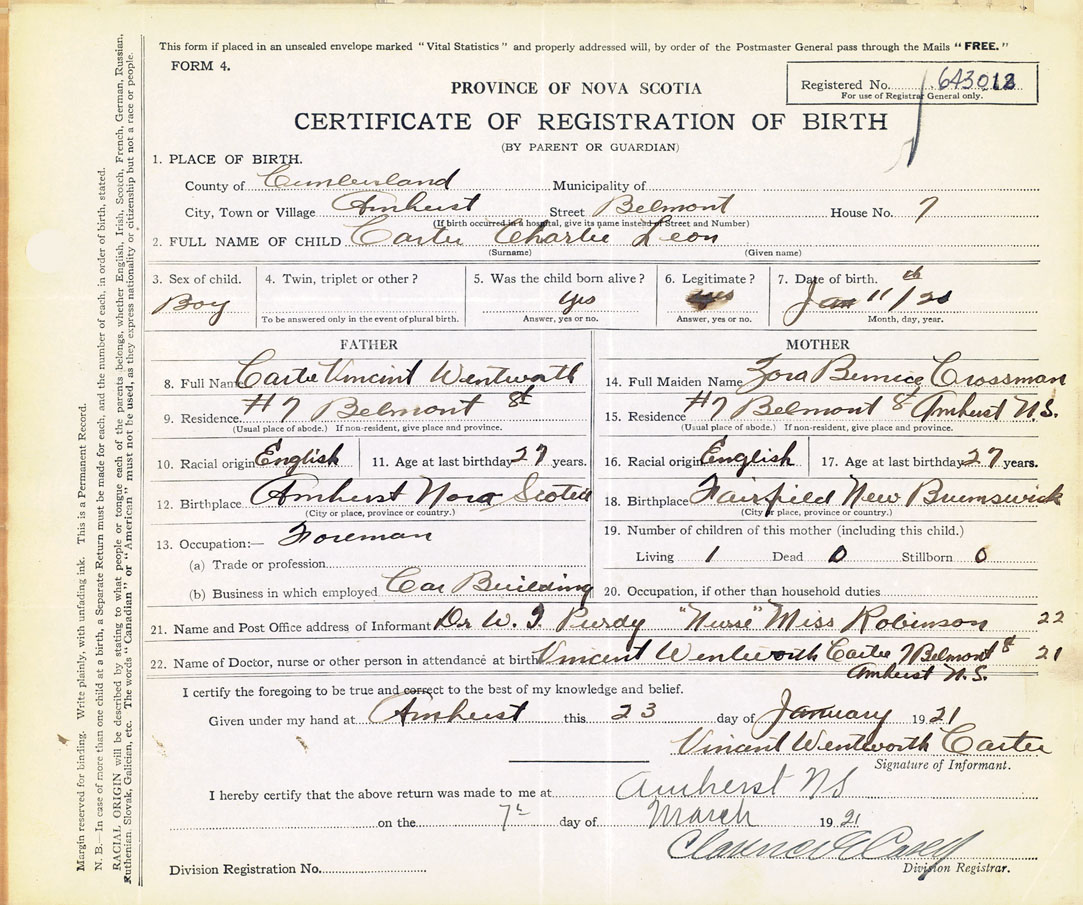 This form if placed in an unsealed envelope marked "Vital Statistics" and properly addressed will, by order of the Postmaster General pass through the Mails "FREE."
FORM 4.
Registered No. 643012
For use of Registrar General only.
PROVINCE OF NOVA SCOTIA
CERTIFICATE OF REGISTRATION OF BIRTH
(BY PARENT OR GUARDIAN)
1. PLACE OF BIRTH.
County of Cumberland Municipality of
City, Town or Village Amherst Street Belmont House No. 7
(If birth occurred in a hospital, give its name instead of Street and Number)
2. FULL NAME OF CHILD Carter Charlie Leon
(Surname) (Given name)
3. Sex of child. 4. Twin, triplet or other? 5. Was the child born alive? 6. Legitimate? 7. Date of birth.
Boy Yes yes Jan 11th/
To be answered only in the event of plural birth. Answer, yes or no. Answer, yes or no. Month, day, year.
FATHER MOTHER
8. Full Name Carter Vincint Wentworth 14. Full Maiden Name Zora Bernice Crossman
9. Residence #7 Belmont St 15. Residence #7 Belmont St Amherst N.S.
(Usual place of abode.) If non-resident, give place and province. (Usual place of abode.) If non-resident, give place and province.
10. Racial origin English 11. Age at last birthday 27 years. 16. Racial origin English 17. Age at last birthday 27 years.
12. Birthplace Amherst Nova Scotia 18. Birthplace Fairfield New Brunswick
(City or place, province or country.) (City or place, province or country.)
13. Occupation:— Foreman 19. Number of children of this mother (including this child.)
(a) Trade or profession Living 1 Dead 0 Stillborn 0
(b) Business in which employed Car Building 20. Occupation, if other than household duties
21. Name and Post Office address of Informant Dr W. T. Purdy "Nurse" Miss Robinson 22
22. Name of Doctor, nurse or other person in attendance at birth Vincent Wentworth Carter 7 Belmont St 21
Amherst N.S.
I certify the foregoing to be true and correct to the best of my knowledge and belief.
Given under my hand at Amherst this 23 day of January 1921
Vincent Wentworth Carter
Signature of Informant.
I hereby certify that the above return was made to me at Amherst NS
on the 7th day of March 1921
Clarence E Casey
Division Registrar.
Division Registration No.
Margin reserved for binding. Write plainly, with unfading ink. This is a Permanent Record.
N. B.—In case of more than one child at a birth, a Separate Return must be made for each, and the number of each, in order of birth, stated.
RACIAL ORIGIN will be described by stating to what people or tongue each of the parents belongs, whether English, Irish, Scotch, French, German, Russian,
Ruthenian, Slovak, Galician, etc. The words "Canadian" or "American" must not be used, as they express nationality or citizenship but not a race or people.